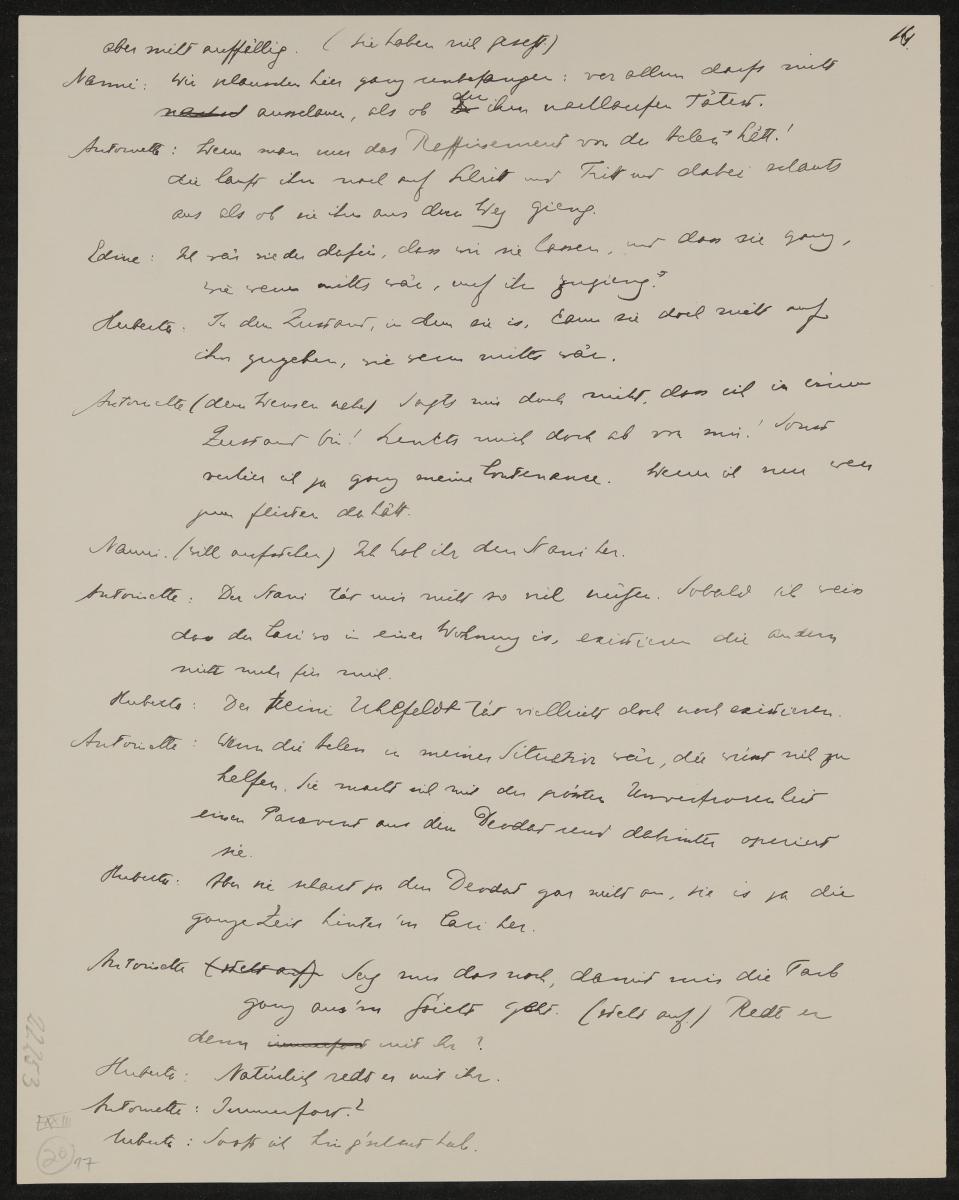 14.
aber nicht auffällig. (Sie haben sich gesetzt.)
Nanni: Wir plauschen hier ganz unbefangen: vor allem darfs nicht
ausschauen, als ob du ihm nachlaufen tätest.
Antoinette: Wenn man nur das Raffinement von der Helen hätt!
die lauft ihm nach auf Schritt und Tritt und dabei schauts
aus als ob sie ihm aus dem Weg gieng.
Edine: Ich wär wieder dafür, dass wir sie lassen, und dass sie ganz,
wie wenn nichts wär, auf ihn zugieng?
Huberta: In dem Zustand, in dem sie is, kann sie doch nicht auf
ihn zugehen, wie wenn nichts wär.
Antoinette (dem Weinen nahe) Sagts mir doch nicht, dass ich in einem
Zustand bin! Lenkts mich doch ab von mir! Sonst
verlier ich ja ganz meine Contenance. Wenn ich nur wen
zum flirten da hätt.
Nanni. (will aufstehen) Ich hol ihr den Stani her.
Antoinette: Der Stani tät mir nicht so viel nützen. Sobald ich weiss
dass der Cari wo in einer Wohnung is, existieren die andern
nicht mehr für mich.
Huberta: Der kleine Uhlfeldt tät vielleicht doch noch existieren.
Antoinette: Wenn die Helen in meiner Situation wär, die wüsst sich zu
helfen. Sie macht sich mit der grössten Unverfrorenheit
einen Paravent aus dem Deodat und dahinter operiert
sie.
Huberta: Aber sie schaut ja den Deodat gar nicht an, sie is ja die
ganze Zeit hinter'm Cari her.
Antoinette (steht auf) Sag mir das noch, damit mir die Farb
ganz aus'm Gsicht geht. (steht auf.) Redt er
denn immerfort mit ihr?
Huberta: Natürlich redt er mit ihr.
Antoinette: Immerfort?
Huberta: Sooft ich hin g'schaut hab.
22253
XXIII
20
17